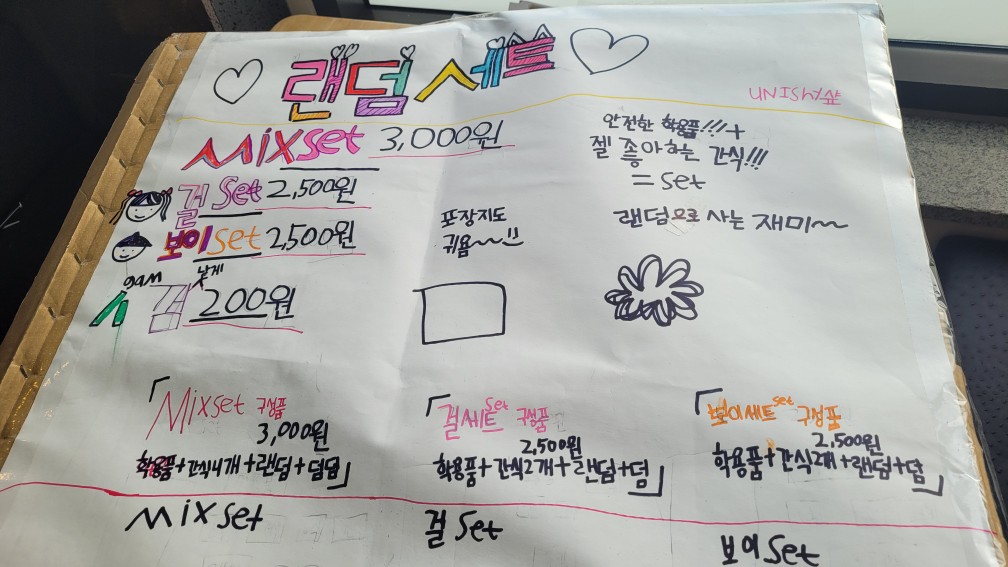 랜덤세트
UNISHY샾
Mixset 3,000원
안전한 학용품!!!+
젤 좋아하는 간식!!!
= set
걸 Set 2,500원
랜덤으로 사는 재미~~
보이set 2,500원
포장지도
귀욤~~
gam
낱개
껌 200원
「Mixset 구성품
3,000원
학용품+간식4개+랜덤+덤덤」
「걸세트set 구성품
2,500원
학용품+간식2개+랜덤+덤」
「보이세트set 구성품
2,500원
학용품+간식2개+랜덤+덤」
Mixset
걸 Set
보이 Set